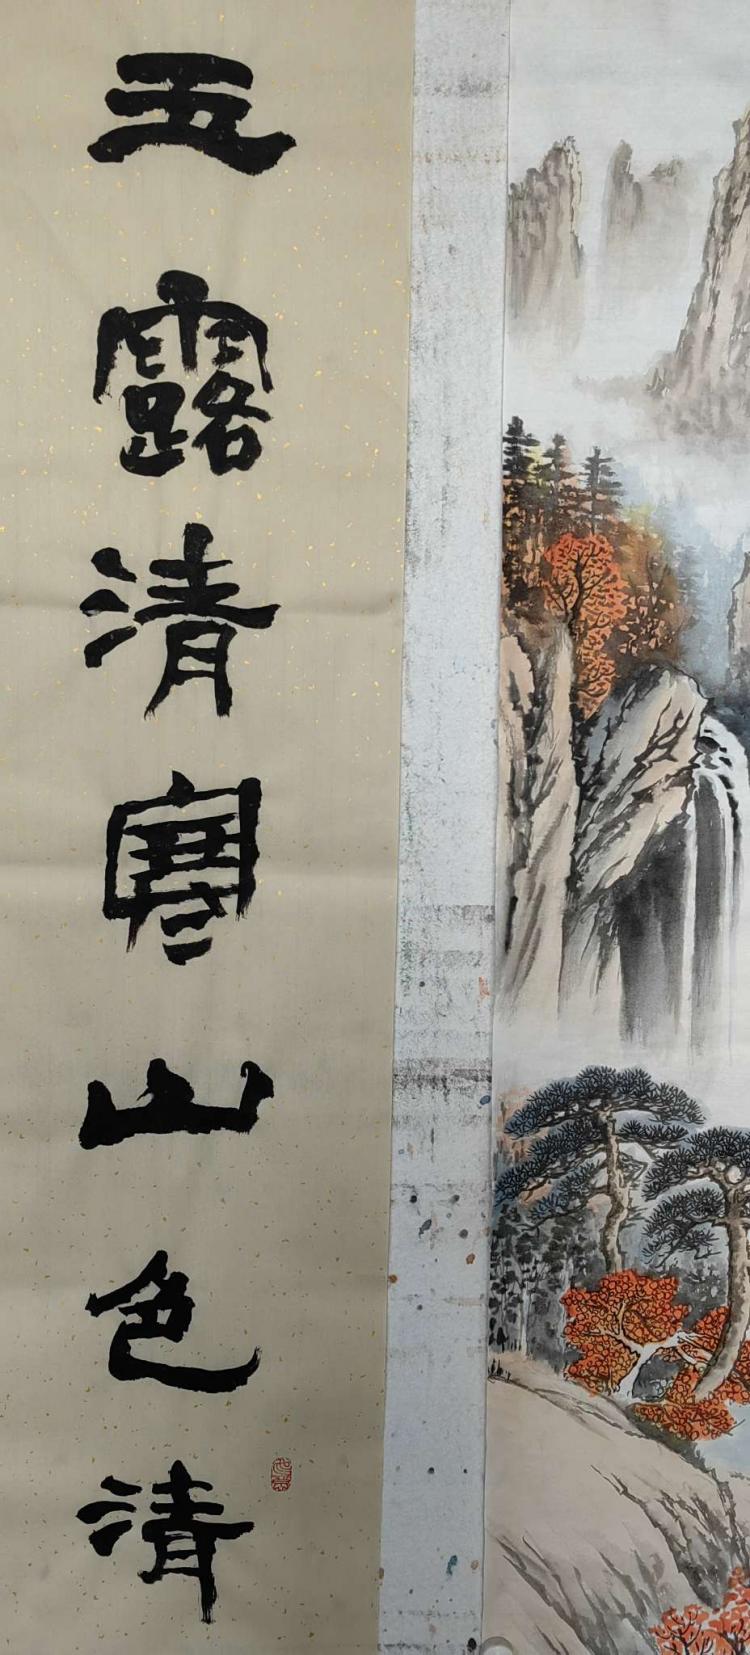 玉露清寒山色清